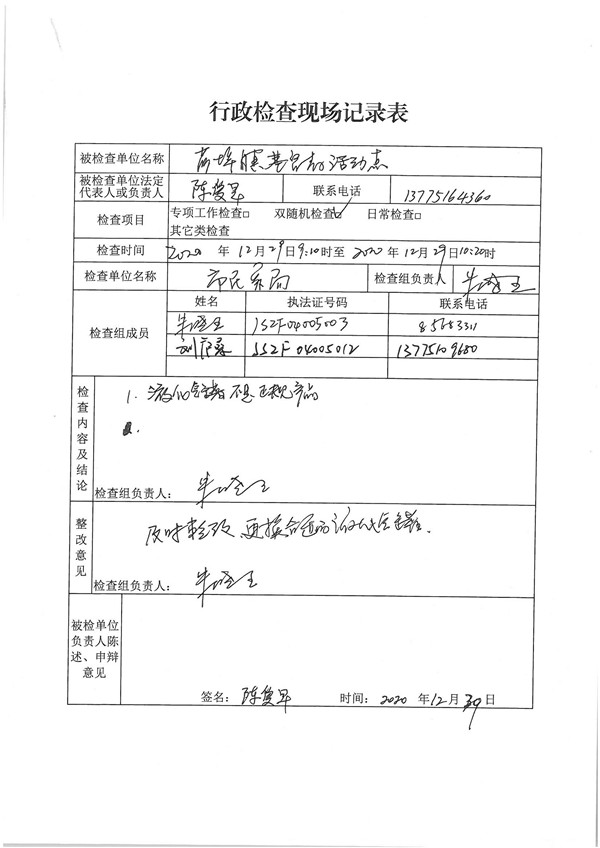 行政检查现场记录表
被检查单位名称 基督教活动点
被检查单位法定代表人或负责人 陈 联系电话 13775164360
检查项目 专项工作检查□ 双随机检查☑ 日常检查□
其它类检查
检查时间 2020 年 12月29日9:10时至 2020 年 12月29日10:20时
检查单位名称 市民宗局 检查组负责人 朱
检查组成员 姓名 执法证号码 联系电话
朱 JS2F04005003 85683311
刘 JS2F04005012 13775109680
检查内容及结论 1. 不是正规产品
2.
检查组负责人: 朱
整改意见 及时整改,更换合适的
检查组负责人: 朱
被检单位负责人陈述、申辩意见
签名: 陈 时间: 2020 年12月29日